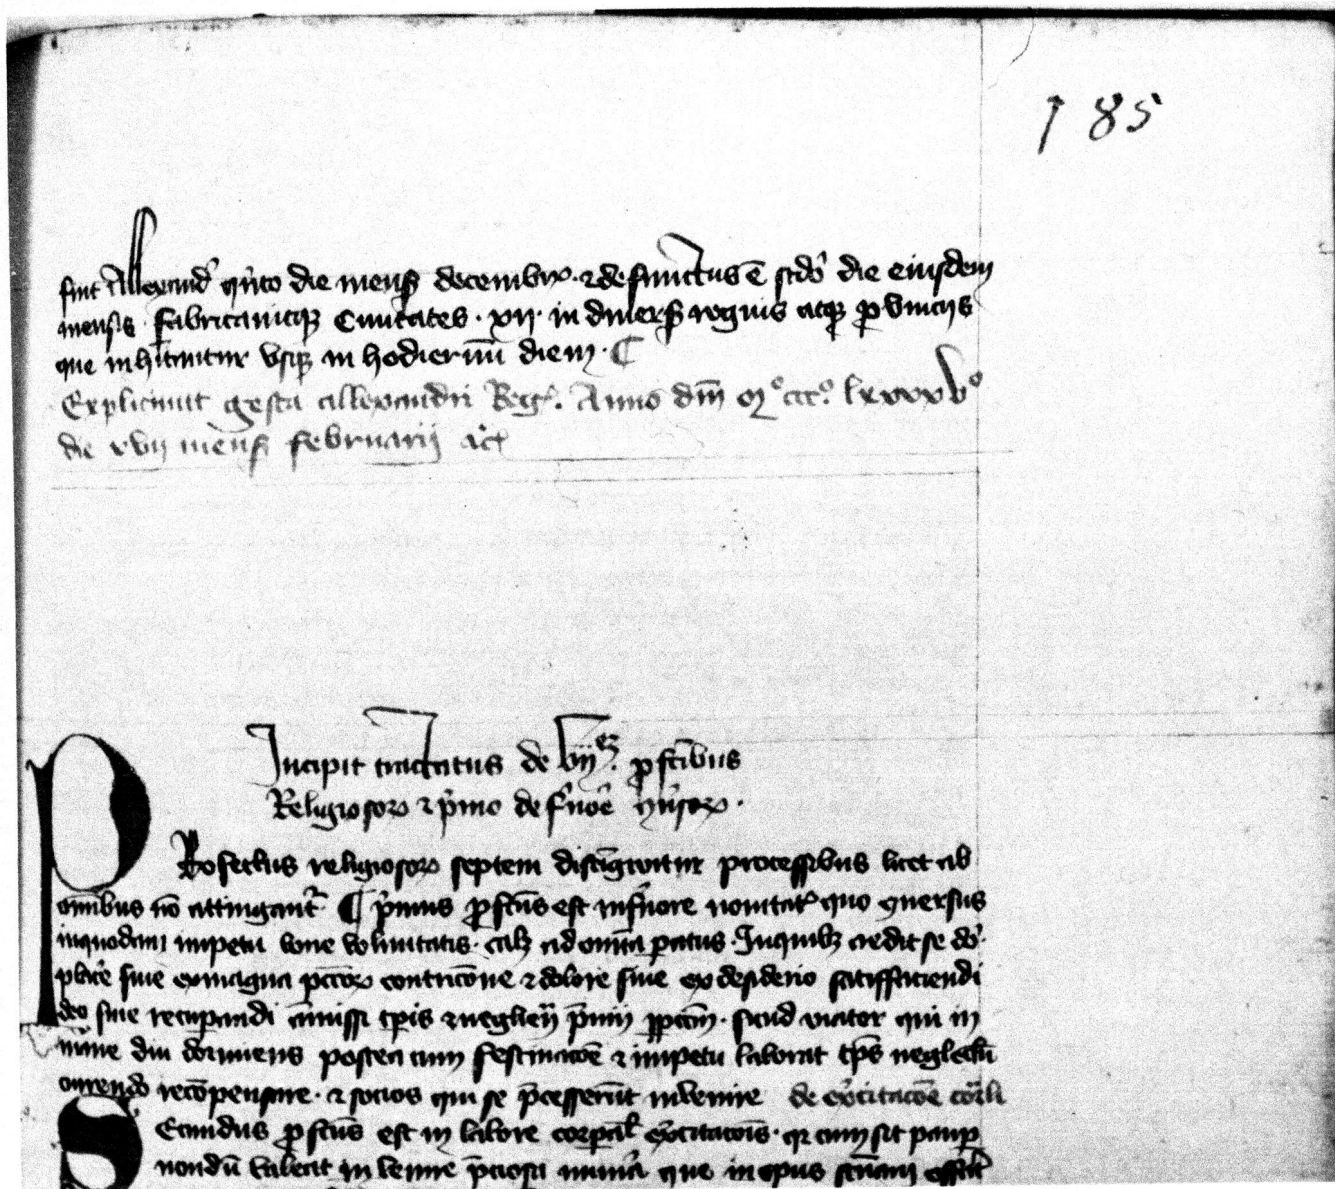 185
fuit Allexand' qu̍nto die mens̨ decembr̨ꝝ · ⁊ defunctus ē sc̄do die eiusdem
mensis · fabricauitqꝫ Ciuitates · xij · in diuers̨ regnis atqꝫ ꝓvincijs
que inhītantur vsqꝫ in hodiernū diem · ¶
Expliciunt gesta allexandri Reg̨ · Anno dn̄i mº cccº lxxxxvº
die xvij mens̨ februarij ac̄
Incipit tractatus de vijᵉᵐ · ꝓfctībus
Religiosoꝝ ⁊ p̍mo de
Profectus religiosoꝝ septem distīguntur processibus licet ab
omībus nō attingant᷑ ¶ p̍mus ꝓfct̄us est in f̄uore nouitat̨ quo ꝯuersus
in quodam impetu bone voluntatis · ad omīa paratus · In quibꝫ credit se dō
placē siue ex magna pcc̄oꝝ contricōne ⁊ dolore siue ex desiderio satiffaciendi
deo siue recuꝑandi amissi tꝑis ⁊ negl̄cti p̄mij · sicud viator qui in
mane diu dormiens postea cum festinacōe ⁊ impetu laborat tp̄s neglectū
currendo recōpensare · ⁊ socios qui se p̄cesserūt inuenire de ex̍citacōe corꝑali
Secundus ꝓfct̄us est in labore corꝑal̄ ex̍citacōis · qꝛ cum sit pauꝑ
nondū valeat inuenire p̄ciosa que in opus